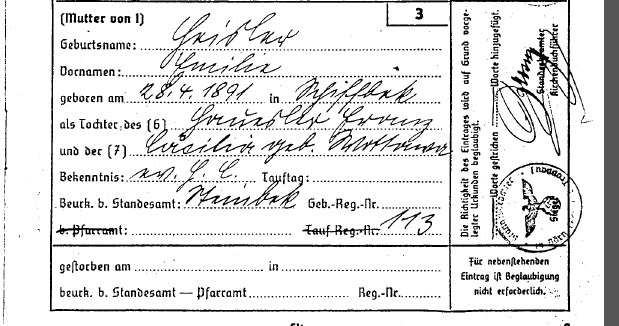 (Mutter von 1)
3
Geburtsname: Heisler
Vornamen: Emilie
geboren am 28.4.1891 in Schiffbek
als Tochter des (6) Haeusler Franz
und der (7) Cäsilia geb. Wottawa
Bekenntnis: ev. Tauftag:
Beurk. b. Standesamt: Steinbek Geb.-Reg.-Nr.
b. Pfarramt: Tauf-Reg.-Nr. 113
gestorben am in
beurk. b. Standesamt — Pfarramt Reg.-Nr.
Die Richtigkeit des Eintrages wird auf Grund vorge-
legter Urkunden beglaubigt.
Worte gestrichen Worte hinzugefügt.
Standesbeamter
Kirchenbuchführer
Siegel
Für nebenstehenden
Eintrag ist Beglaubigung
nicht erforderlich.